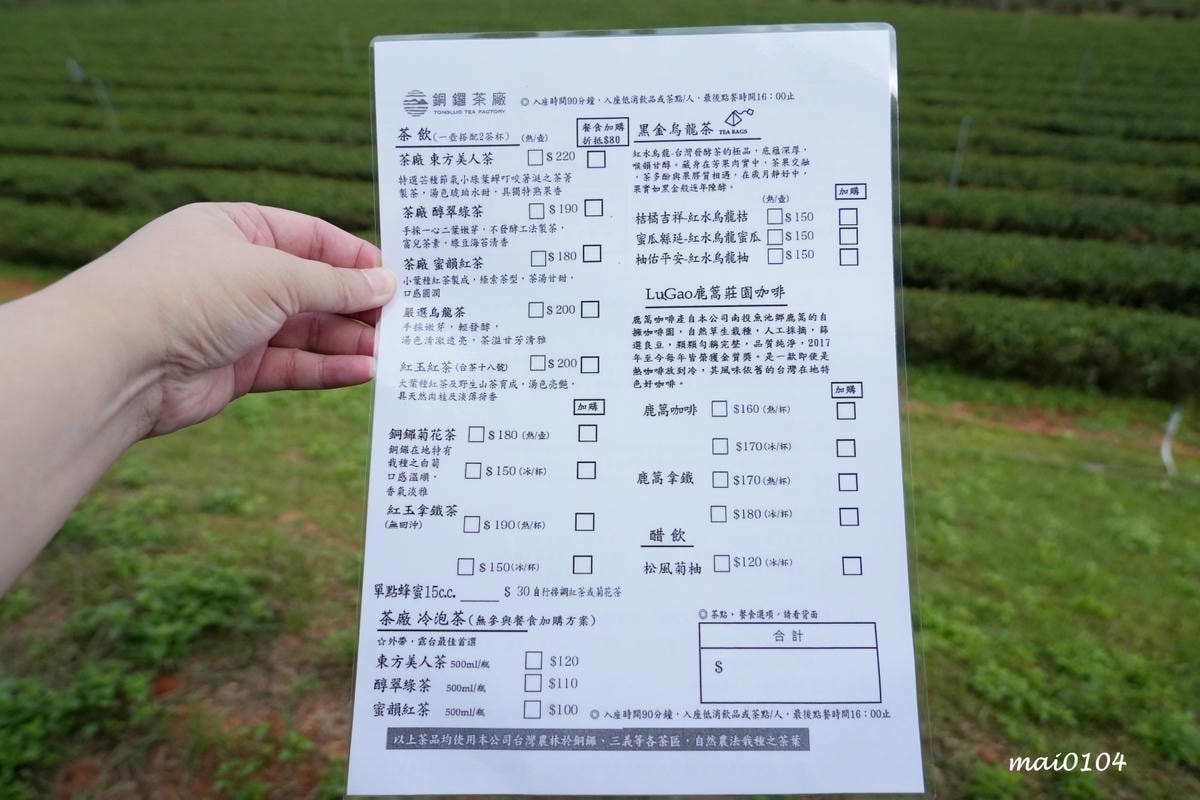 銅鑼茶廠
TONGLUO TEA FACTORY
◎ 入座時間90分鐘,入座低消飲品或茶點/人,最後點餐時間16:00止
茶飲(一壺搭配2茶杯) (熱/壺)
餐食加購
折抵$80
茶廠 東方美人茶 $220
特選芒種節氣小綠葉蟬叮咬著涎之茶菁
製茶,湯色琥珀水甜,具獨特熟果香
茶廠 醇翠綠茶 $190
手採一心二葉嫩芽,不發酵工法製茶,
富兒茶素,綠豆海苔清香
茶廠 蜜韻紅茶 $180
小葉種紅茶製成,條索茶型,茶湯甘甜,
口感圓潤
嚴選烏龍茶 $200
手採嫩芽,輕發酵,
湯色清澈透亮,茶溢甘芳清雅
紅玉紅茶(台茶十八號) $200
大葉種紅茶及野生山茶育成,湯色亮艷,
具天然肉桂及淡薄荷香
加購
銅鑼菊花茶 $180 (熱/壺)
銅鑼在地特有
栽種之白菊
口感溫順,
香氣淡雅
$150 (冰/杯)
紅玉拿鐵茶
(無回沖)
$190 (熱/杯)
$150 (冰/杯)
單點蜂蜜15c.c. ____ $ 30 自行擇調紅茶或菊花茶
茶廠 冷泡茶(無參與餐食加購方案)
☆外帶,露台最佳首選
東方美人茶 500ml/瓶 $120
醇翠綠茶 500ml/瓶 $110
蜜韻紅茶 500ml/瓶 $100
黑金烏龍茶 TEA BAGS
紅水烏龍-台灣發酵茶的極品,底蘊深厚,
喉韻甘醇。藏身在芳果肉實中,茶果交融
,茶多酚與果膠質相遇,在歲月靜好中,
果實如黑金般逐年陳酵。
(熱/壺)
加購
桔橘吉祥-紅水烏龍桔 $150
蜜瓜緜延-紅水烏龍蜜瓜 $150
柚佑平安-紅水烏龍柚 $150
LuGao鹿篙莊園咖啡
鹿篙咖啡產自本公司南投魚池鄉鹿篙的自
擁咖啡園,自然草生栽種,人工採摘,篩
選良豆,顆顆勻稱完整,品質純淨,2017
年至今每年皆榮獲金質獎。是一款即使是
熱咖啡放到冷,其風味依舊的台灣在地特
色好咖啡。
加購
鹿篙咖啡 $160 (熱/杯)
$170 (冰/杯)
鹿篙拿鐵 $170 (熱/杯)
$180 (冰/杯)
醋飲
松風菊柚 $120 (冰/杯)
◎茶點、餐食選項,請看背面
合計
$
◎ 入座時間90分鐘,入座低消飲品或茶點/人,最後點餐時間16:00止
以上茶品均使用本公司台灣農林於銅鑼、三義等各茶區,自然農法栽種之茶葉
mai0104